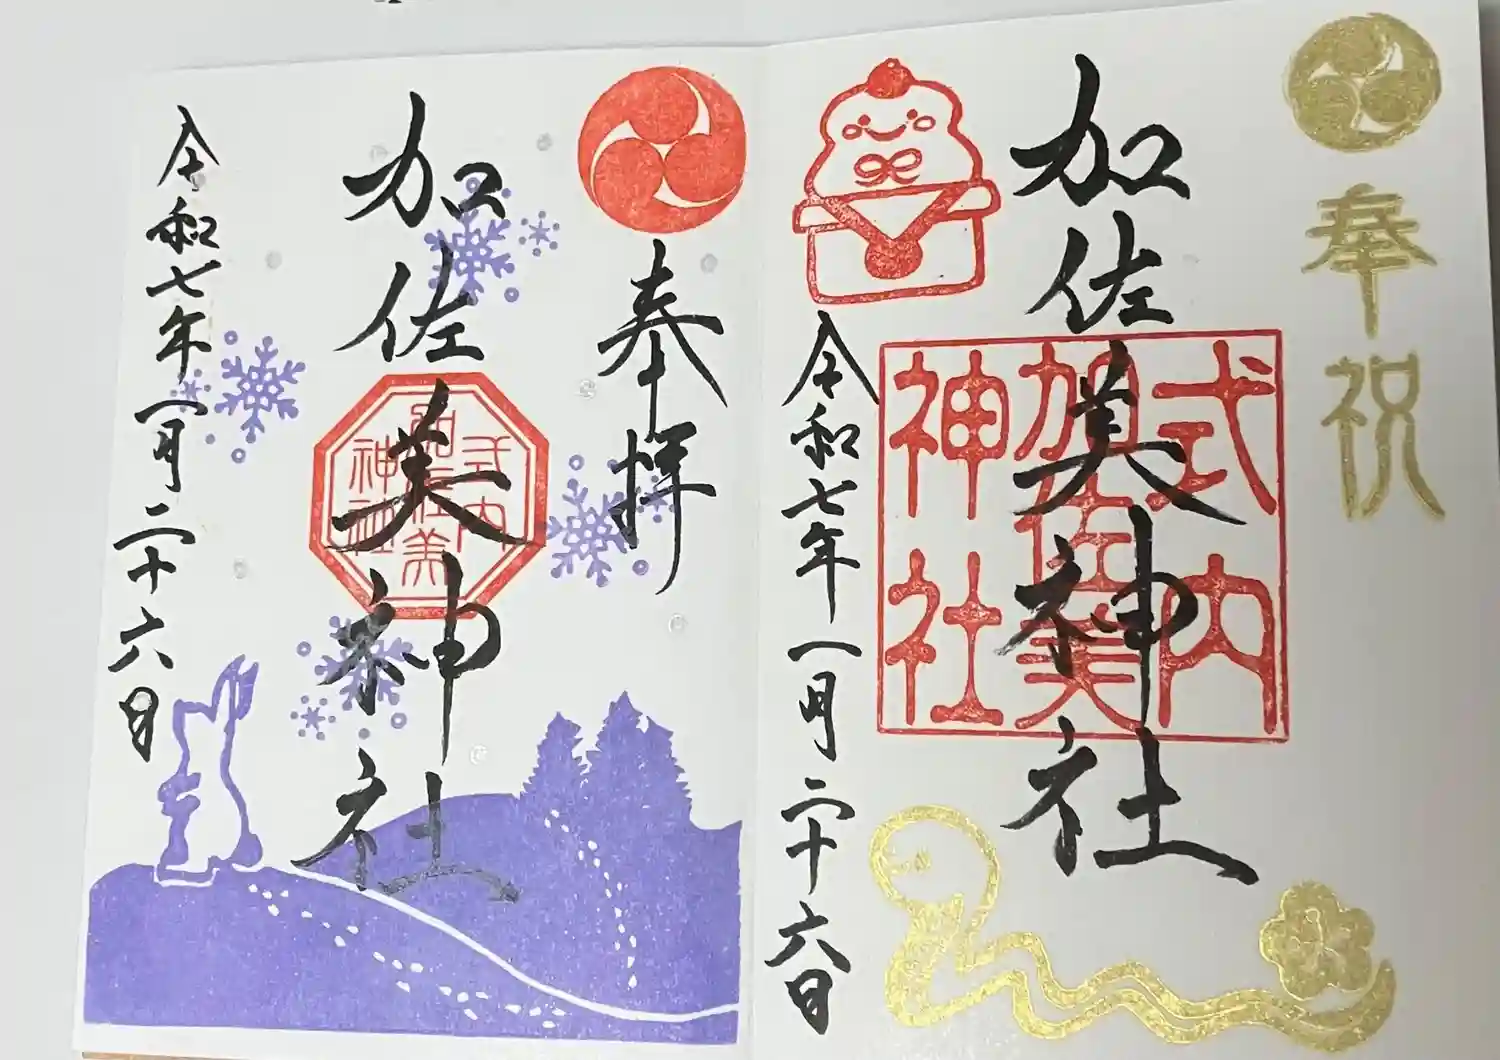 奉祝
加佐美神社
式内
加佐美
神社
令和七年一月二十六日
奉拝
加佐美神社
式内
加佐美
神社
令和七年一月二十六日